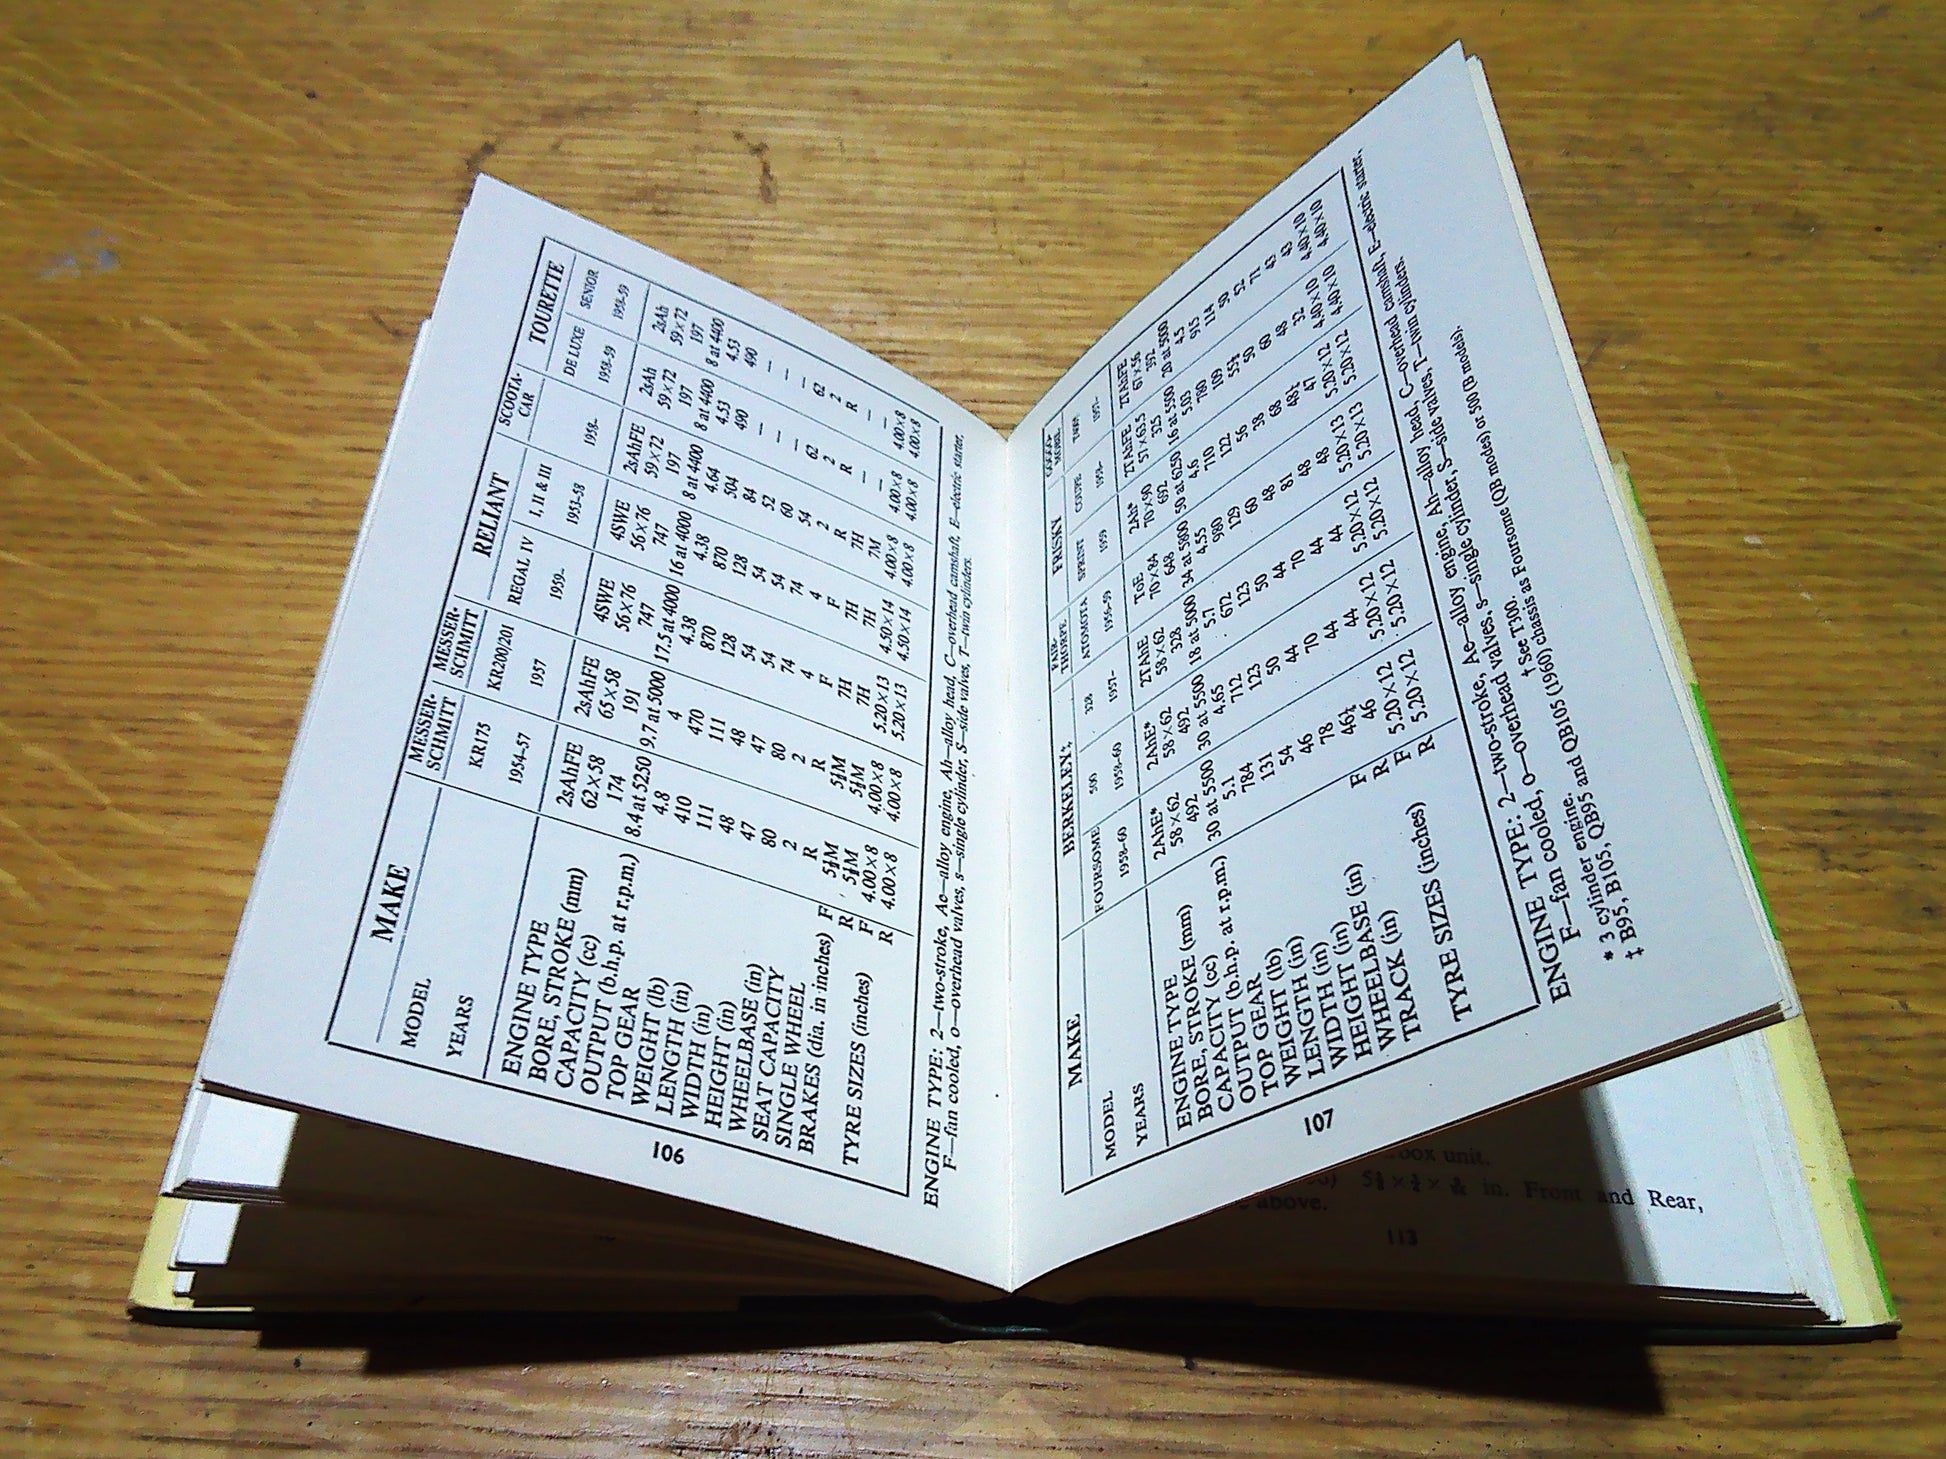 MAKE MESSER- SCHMITT MESSER- SCHMITT RELIANT SCOOTA- CAR TOURETTE
MODEL KR175 KR200/201 REGAL IV I, II & III DE LUXE SENIOR
YEARS 1954–57 1957 1959– 1953–58 1958– 1958–59 1958–59
ENGINE TYPE 2sAhFE 2sAhFE 4SWE 4SWE 2sAhFE 2sAh 2sAh
BORE, STROKE (mm) 62×58 65×58 56×76 56×76 59×72 59×72 59×72
CAPACITY (cc) 174 191 747 747 197 197 197
OUTPUT (b.h.p. at r.p.m.) 8.4 at 5250 9.7 at 5000 17.5 at 4000 16 at 4000 8 at 4400 8 at 4400 8 at 4400
TOP GEAR 4.8 4 4.38 4.38 4.64 4.53 4.53
WEIGHT (lb) 410 470 870 870 504 490 490
LENGTH (in) 111 111 128 128 84 — —
WIDTH (in) 48 48 54 54 52 — —
HEIGHT (in) 47 47 54 54 60 — —
WHEELBASE (in) 80 80 74 74 54 62 62
SEAT CAPACITY 2 2 4 4 2 2 2
SINGLE WHEEL R R F F R R R
BRAKES (dia. in inches) F 5½M 5½M 7H 7H 7H — —
R 5½M 5½M 7H 7H 7M — —
TYRE SIZES (inches) F 4.00×8 4.00×8 5.20×13 4.50×14 4.00×8 4.00×8 4.00×8
R 4.00×8 4.00×8 5.20×13 4.50×14 4.00×8 4.00×8 4.00×8
ENGINE TYPE: 2—two-stroke, Ae—alloy engine, Ah—alloy head, C—overhead camshaft, E—electric starter,
F—fan cooled, o—overhead valves, s—single cylinder, S—side valves, T—twin cylinders.
106
MAKE BERKELEY‡ FAIR- THORPE FRISKY GOGGO- MOBIL
MODEL FOURSOME 500 328 ATOMOTA SPRINT COUPE
YEARS 1958–60 1958–60 1957– 1956–59 1959 1958– 1957–
ENGINE TYPE 2AhE* 2AhE* 2TAhE ToE 2Ah* 2TAhFE 2TAhFE
BORE, STROKE (mm) 58×62 58×62 58×62 70×84 70×90 57×63.5 67×56
CAPACITY (cc) 492 492 328 648 692 325 392
OUTPUT (b.h.p. at r.p.m.) 30 at 5500 30 at 5500 18 at 5000 34 at 5800 50 at 6250 16 at 5500 20 at 5000
TOP GEAR 5.1 4.65 5.7 4.55 4.6 5.03 4.5
WEIGHT (lb) 784 712 672 980 710 780 915
LENGTH (in) 131 123 123 129 122 109 114
WIDTH (in) 54 50 50 60 56 55½ 50
HEIGHT (in) 46 44 44 48 38 50 52
WHEELBASE (in) 78 70 70 81 68 60 71
TRACK (in) F 46½ 44 44 48 48½ 48 43
R 46 44 44 48 47 32 43
TYRE SIZES (inches) F 5.20×12 5.20×12 5.20×12 5.20×13 5.20×12 4.40×10 4.40×10
R 5.20×12 5.20×12 5.20×12 5.20×13 5.20×12 4.40×10 4.40×10
ENGINE TYPE: 2—two-stroke, Ae—alloy engine, Ah—alloy head, C—overhead camshaft, E—electric starter,
F—fan cooled, o—overhead valves, s—single cylinder, S—side valves, T—twin cylinders.
* 3 cylinder engine. † See T300.
‡ B95, B105, QB95 and QB105 (1960) chassis as Foursome (QB modes) or 500 (B models).
107
box unit.
in. Front and Rear,
above.
113